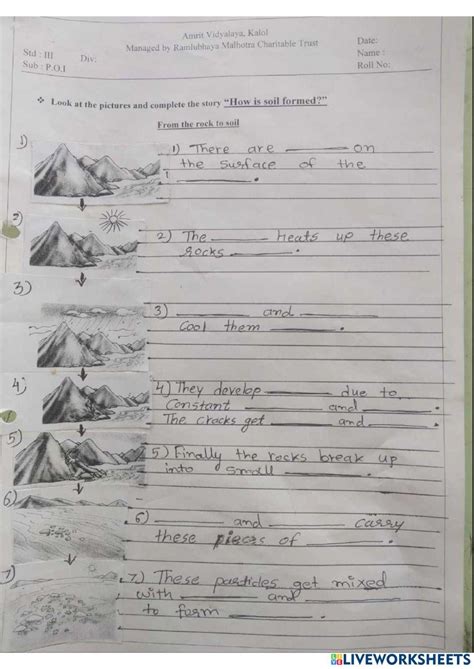 Amrit Vidyalaya, Kalol
Managed by Ramlubhaya Malhotra Charitable Trust
Date:
Std : III
Div:
Name :
Sub : P.O.I
Roll No:
❖ Look at the pictures and complete the story "How is soil formed?"
From the rock to soil
1)
1) There are ________ on
the surface of the
________.
2)
2) The ________ heats up these
rocks ________.
3)
3) ________ and ________
cool them ________.
4)
4) They develop ________ due to
Constant ________ and ________.
The cracks get ________ and ________.
5)
5) Finally the rocks break up
into small ________.
6)
6) ________ and ________ carry
these pieces of ________.
7)
7) These particles get mixed
with ________ and ________
to form ________.
LIVEWORKSHEETS